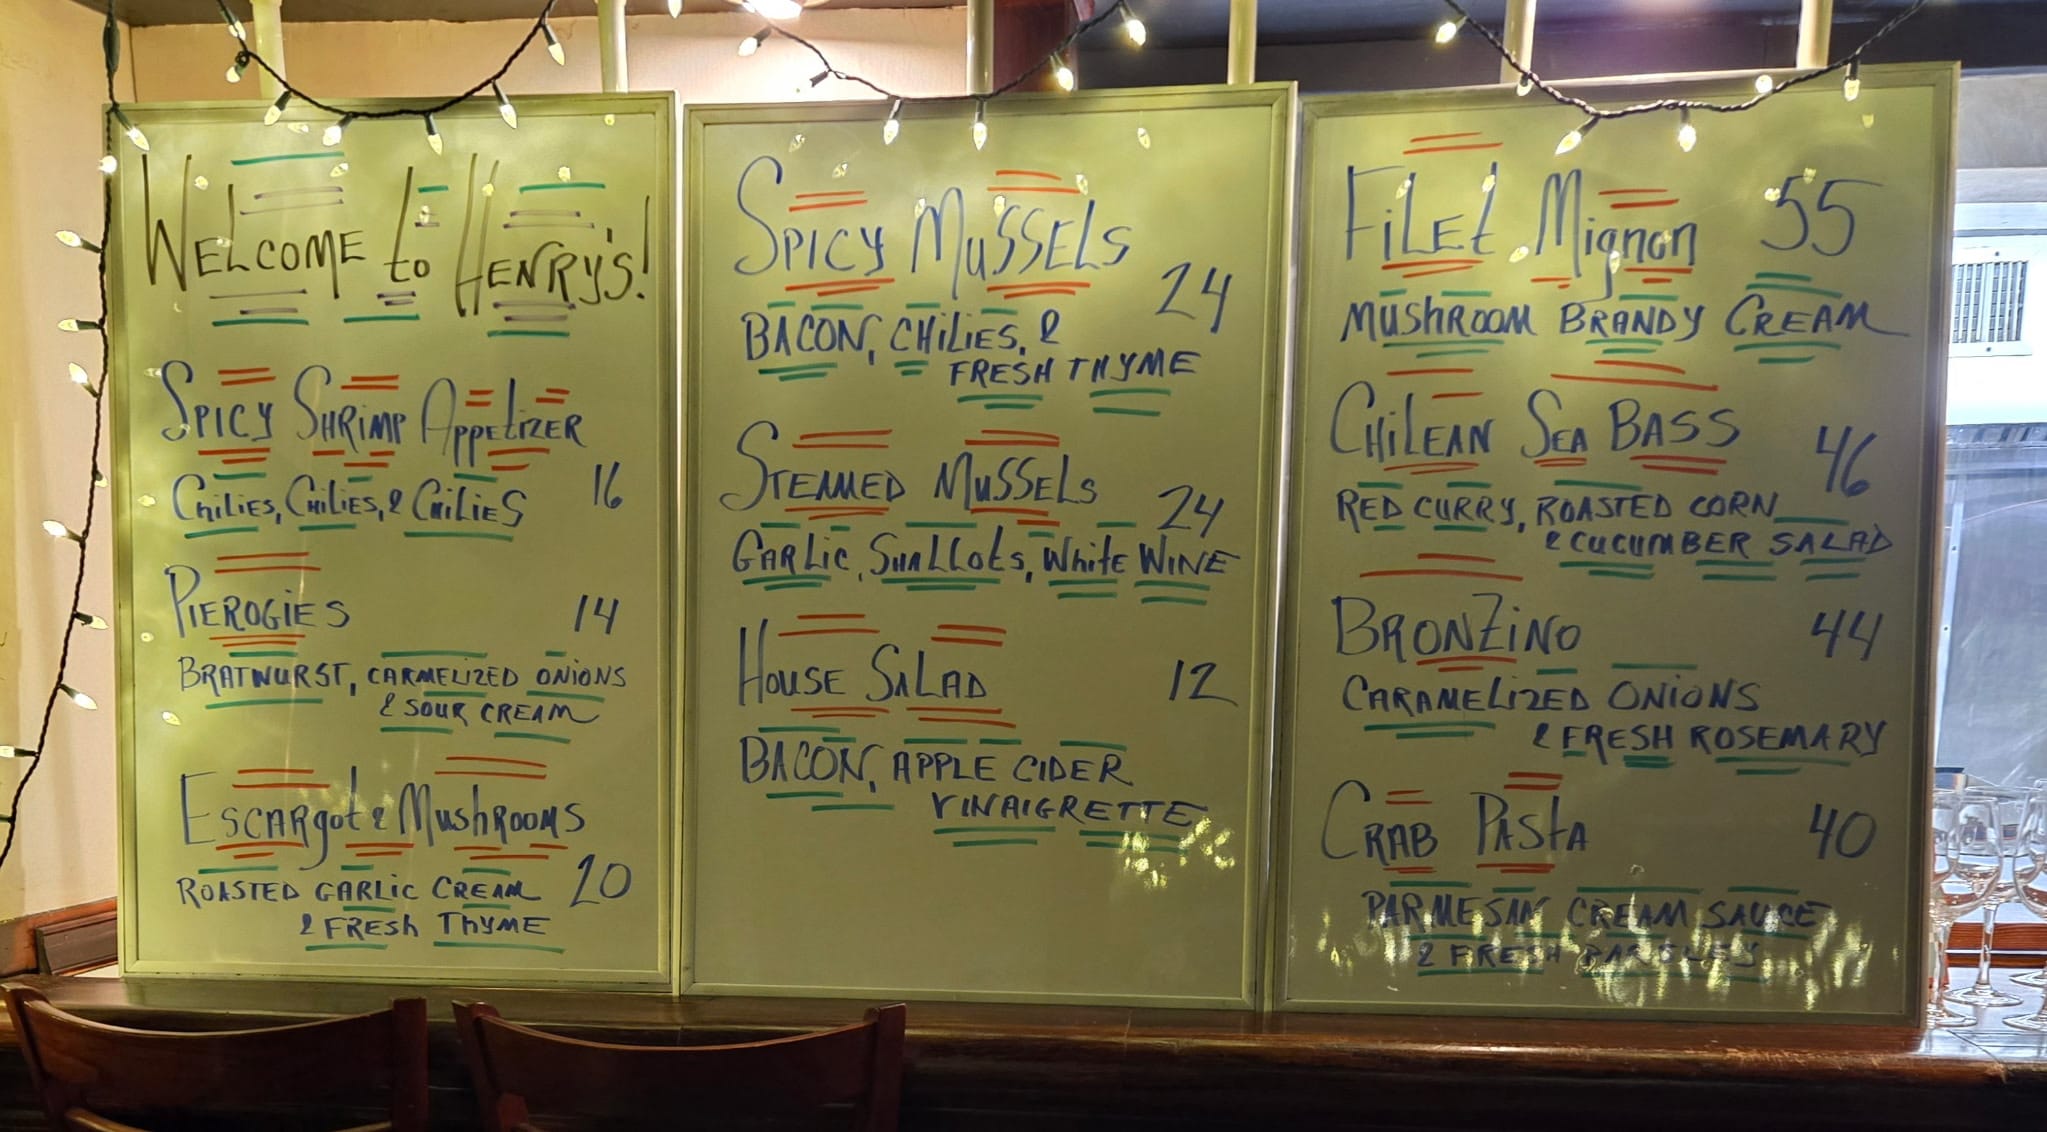 WELCOME to HENRY'S!
SPICY SHRIMP APPETIZER
CHILIES, CHILIES, & CHILIES 16
PIEROGIES 14
BRATWURST, CARMELIZED ONIONS
& SOUR CREAM
ESCARgot & MUSHROOMS
ROASTED GARLIC CREAM 20
& FRESH THYME
SPICY MUSSELS
24
BACON, CHILIES, &
FRESH THYME
STEAMED MUSSELS
24
GARLIC, SHALLOTS, WHITE WINE
HOUSE SALAD 12
BACON, APPLE CIDER
VINAIGRETTE
FILET MIGNON 55
MUSHROOM BRANDY CREAM
CHILEAN SEA BASS
46
RED CURRY, ROASTED CORN
& CUCUMBER SALAD
BRONZINO 44
CARAMELIZED ONIONS
& FRESH ROSEMARY
CRAB PASTA 40
PARMESAN CREAM SAUCE
& FRESH PARSLEY